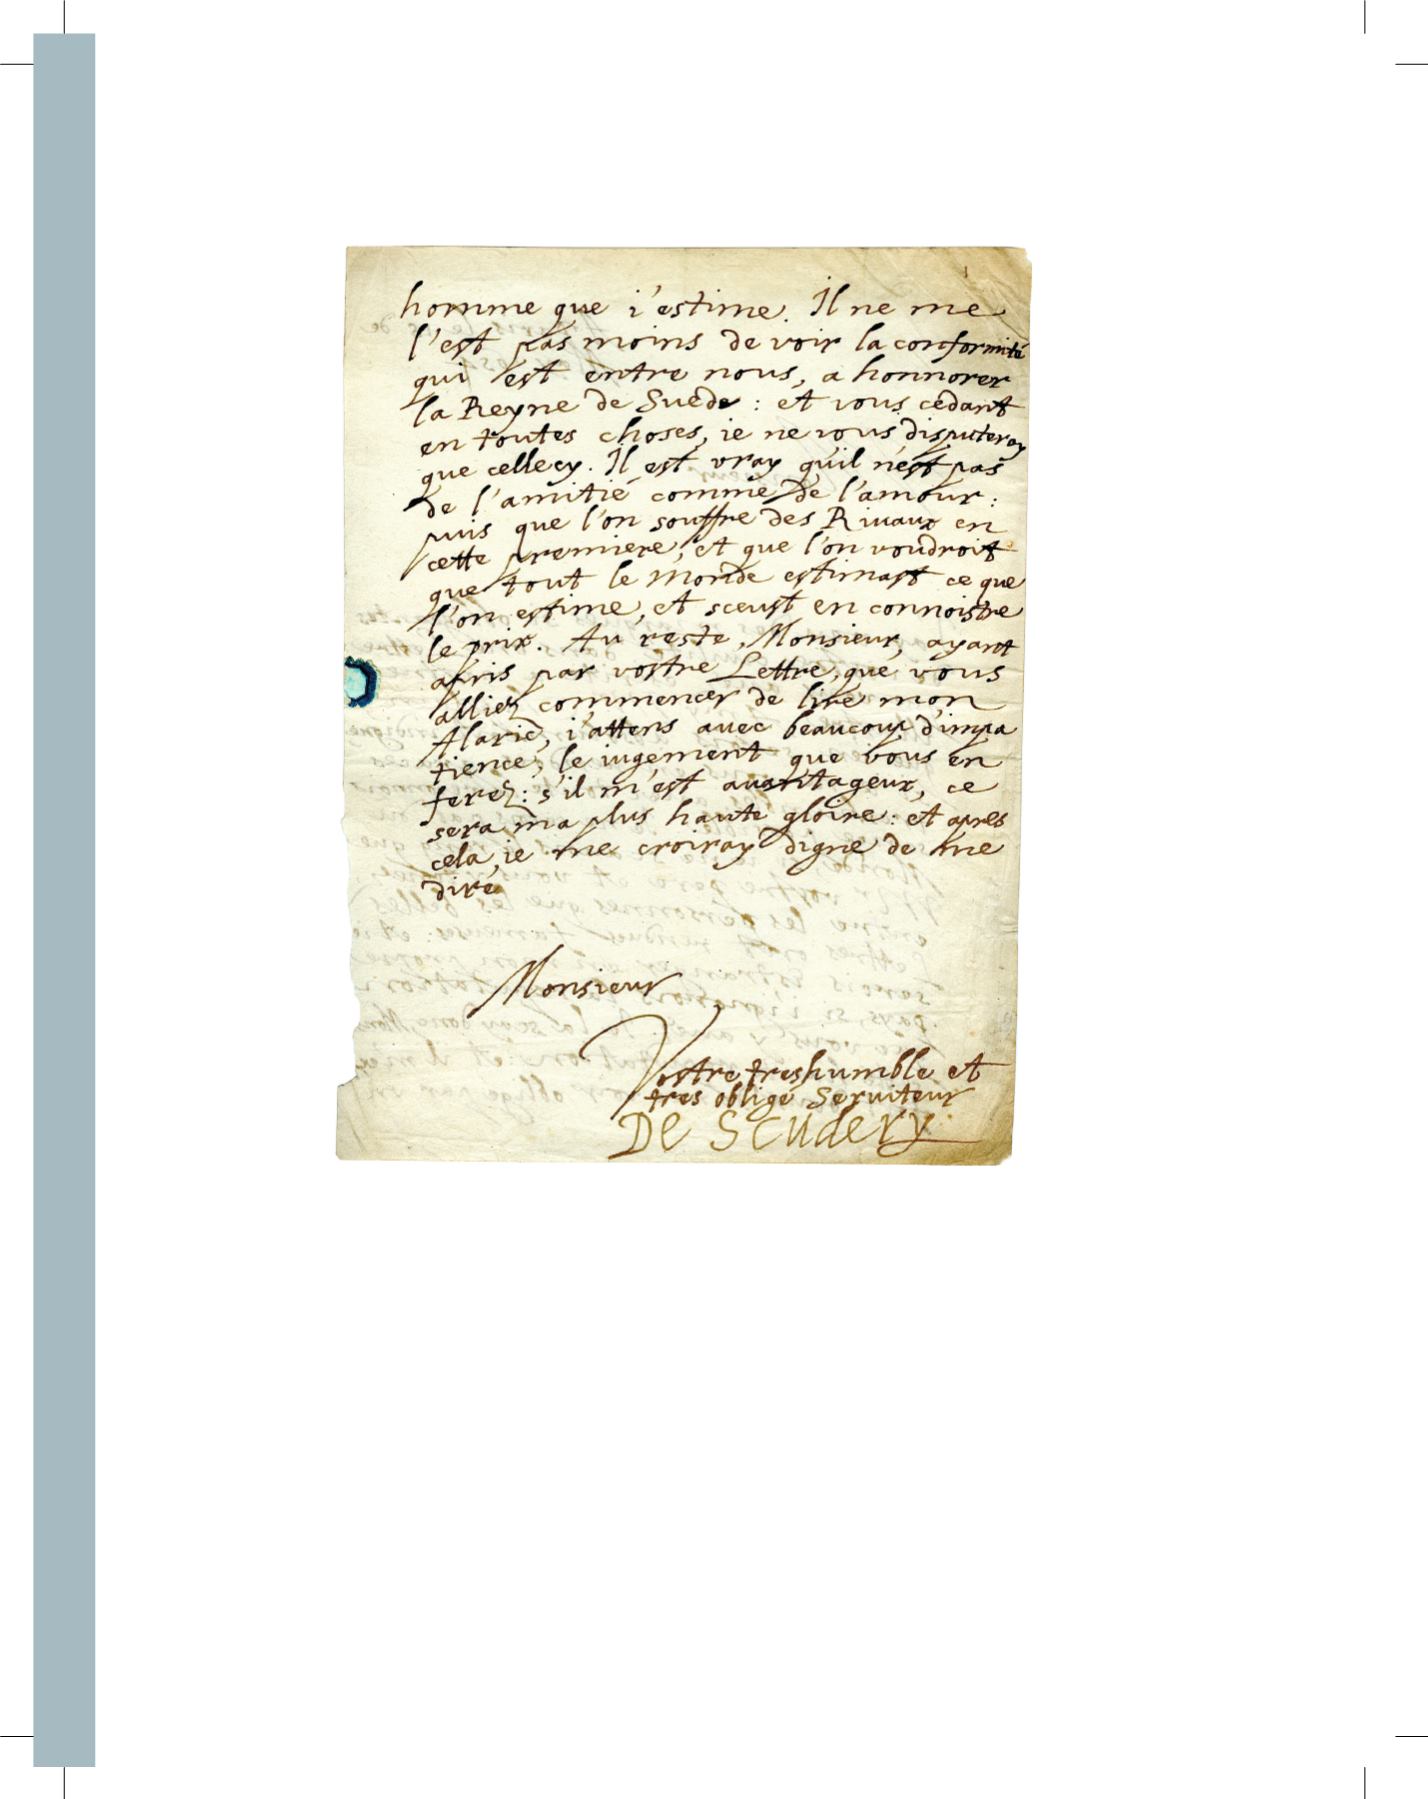 homme que i'estime. Il ne me
l'est pas moins de voir la conformité
qui est entre nous, a honnorer
la Reyne de Suede : et vous cedant
en toutes choses, ie ne vous disputeray
que cellecy. Il est vray qu'il n'est pas
de l'amitié comme de l'amour :
puis que l'on souffre des Riuaux en
cette premiere, et que l'on voudroit
que tout le Monde estimast ce que
l'on estime, et sceust en connoistre
le prix. Au reste, Monsieur, ayant
apris par vostre Lettre, que vous
alliez commencer de lire mon
Alaric, i'attens avec beaucoup d'impa
tience, le iugement que vous en
ferez : s'il m'est auantageux, ce
sera ma plus haute gloire : et apres
cela, ie me croiray digne de me
dire
Monsieur
Vostre treshumble et
tres obligé Seruiteur
De Scudery